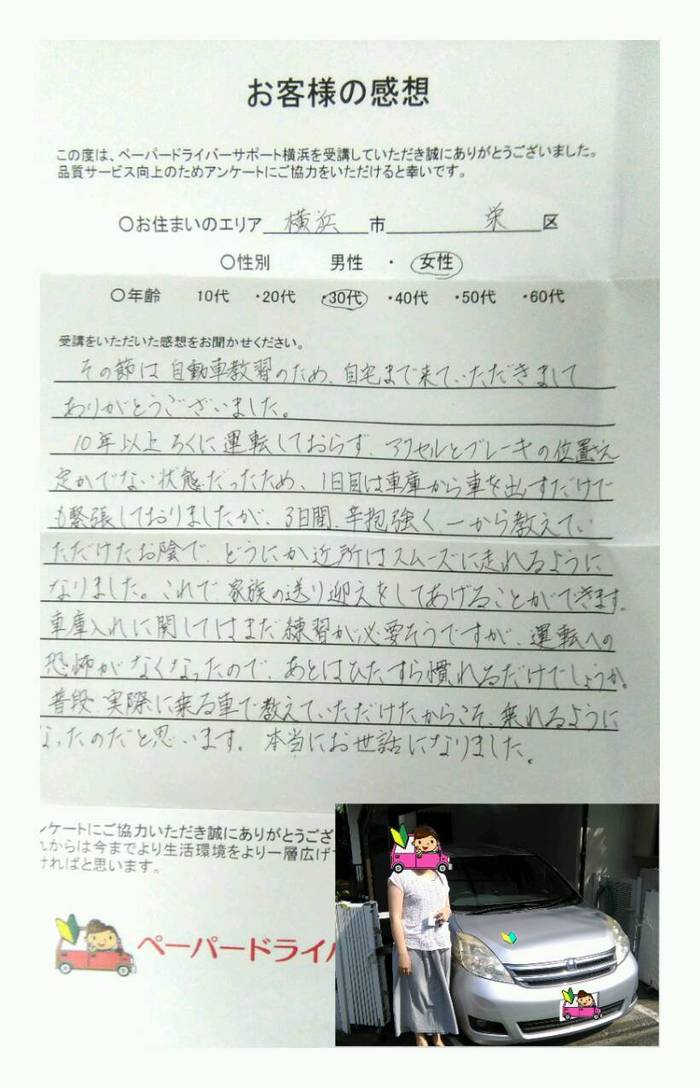 お客様の感想
この度は、ペーパードライバーサポート横浜を受講していただき誠にありがとうございました。
品質サービス向上のためアンケートにご協力をいただけると幸いです。
○お住まいのエリア 横浜 市 栄 区
○性別 男性 ・ 女性
○年齢 10代 ・20代 ・30代 ・40代 ・50代 ・60代
受講をいただいた感想をお聞かせください。
その節は自動車教習のため、自宅まで来ていただきまして
ありがとうございました。
10年以上ろくに運転しておらず、アクセルとブレーキの位置さえ
定かでない状態だったため、1日目は車庫から車を出すだけで
も緊張しておりましたが、3日間、辛抱強く、一から教えてい
ただけたお陰で、どうにか近所はスムーズに走れるように
なりました。これで家族の送り迎えをしてあげることができます。
車庫入れに関してはまだ練習が必要そうですが、運転への
恐怖がなくなったので、あとはひたすら慣れるだけでしょうか。
普段、実際に乗る車で教えていただけたからこそ、乗れるように
なったのだと思います。本当にお世話になりました。
ンケートにご協力いただき誠にありがとうござ
れからは今までより生活環境をより一層広げ
ければと思います。
ペーパードライ